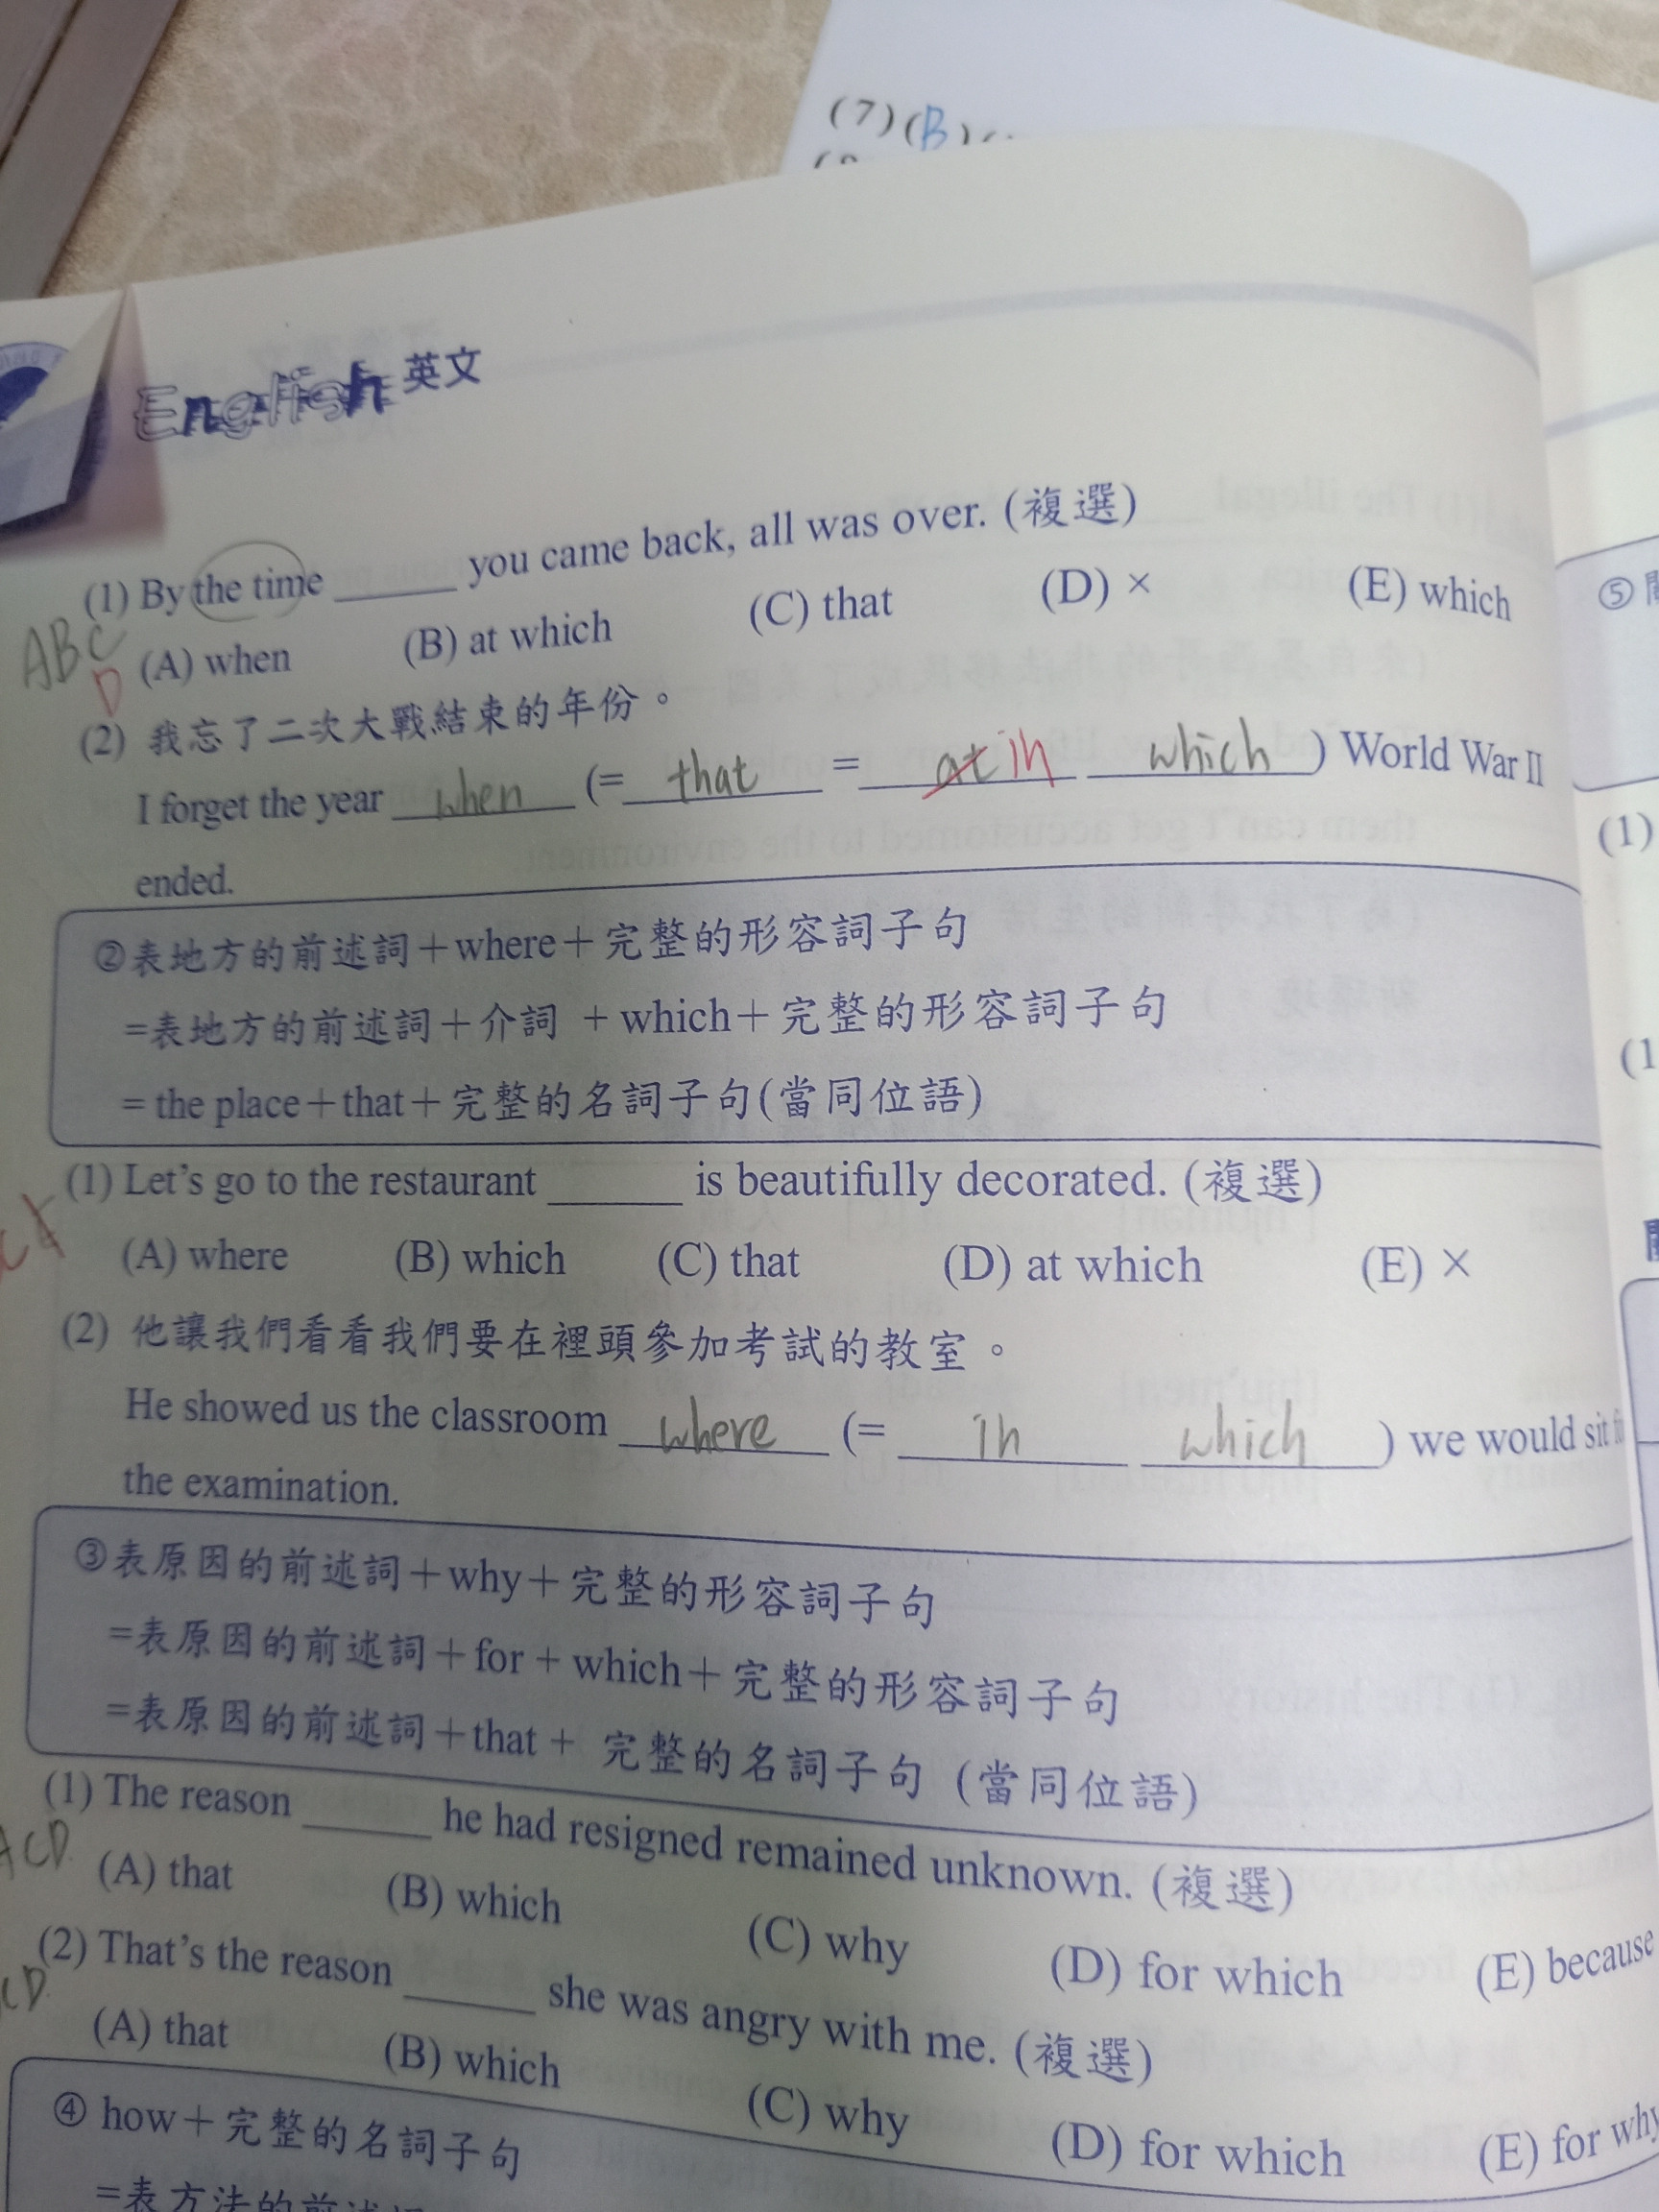 (7) (B)
English 英文
(1) By the time ______ you came back, all was over. (複選)
ABC
D
(A) when (B) at which (C) that (D) × (E) which
(2) 我忘了二次大戰結束的年份。
I forget the year when (= that = at in which ) World War II
ended.
②表地方的前述詞＋where＋完整的形容詞子句
=表地方的前述詞＋介詞 + which＋完整的形容詞子句
= the place＋that＋完整的名詞子句(當同位語)
(1) Let's go to the restaurant ______ is beautifully decorated. (複選)
(A) where (B) which (C) that (D) at which (E) ×
(2) 他讓我們看看我們要在裡頭參加考試的教室。
He showed us the classroom where (= in which ) we would sit
the examination.
③表原因的前述詞＋why＋完整的形容詞子句
=表原因的前述詞＋for + which＋完整的形容詞子句
=表原因的前述詞＋that + 完整的名詞子句 (當同位語)
(1) The reason ______ he had resigned remained unknown. (複選)
ACD
(A) that (B) which (C) why (D) for which (E) because
(2) That's the reason ______ she was angry with me. (複選)
CD
(A) that (B) which (C) why (D) for which (E) for why
④ how＋完整的名詞子句
=表方法的前述詞
⑤
(1)
(1